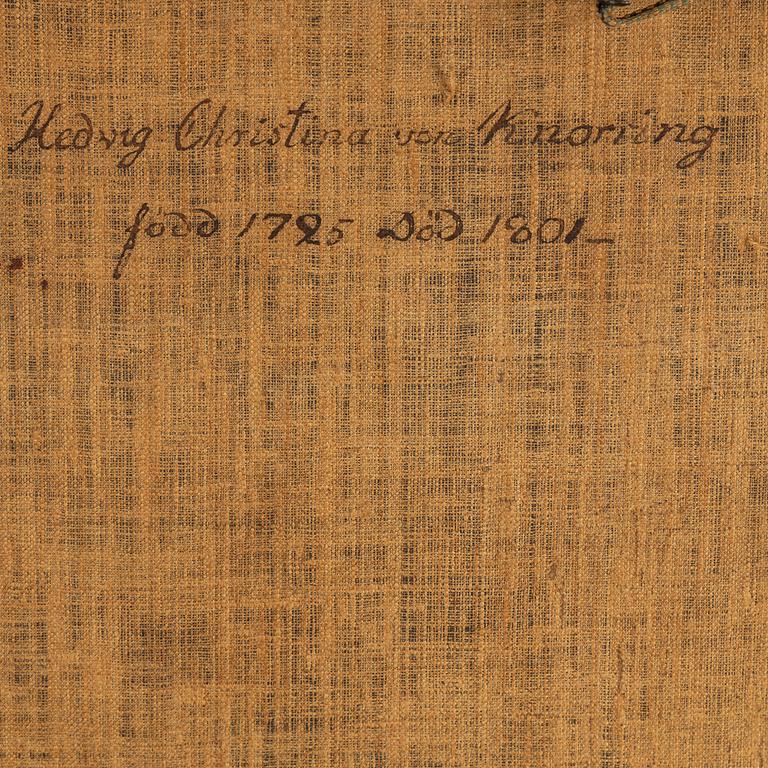 Hedvig Christina von Knorring
född 1725 Död 1801_